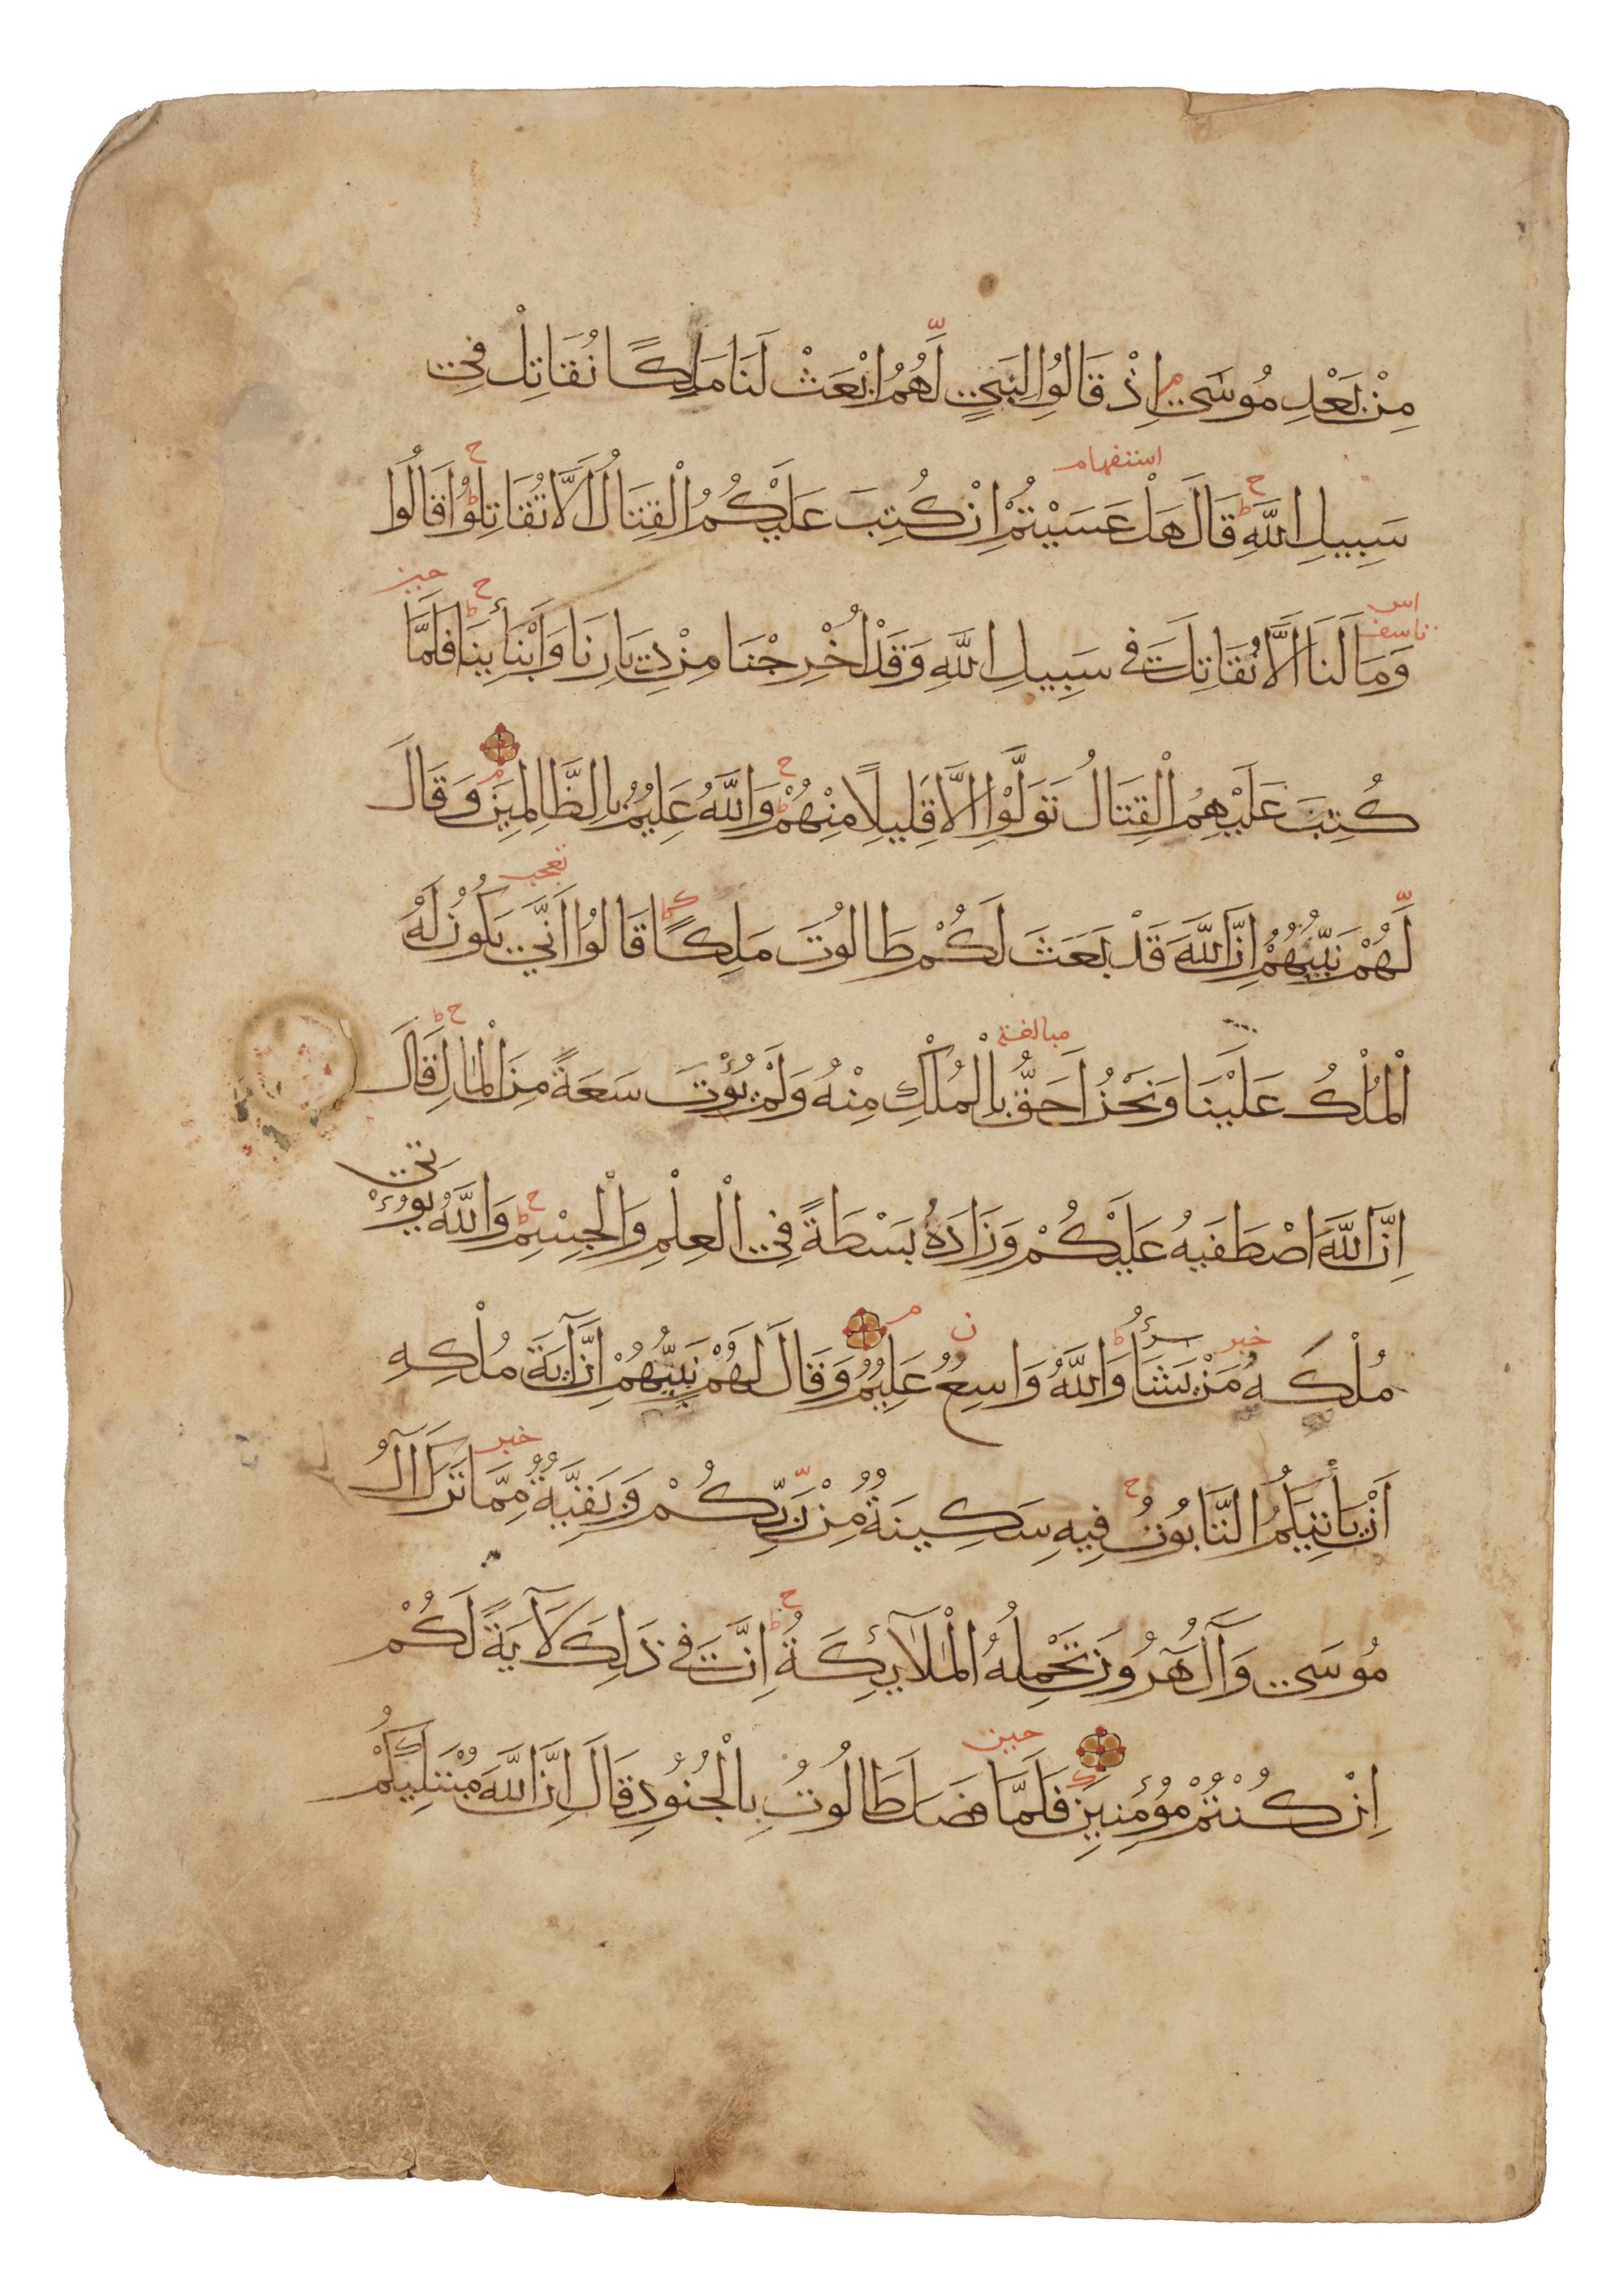 مِنْ بَعْدِ مُوسَى م اِذْ قَالُوا لِنَبِيٍّ لَّهُمُ ابْعَثْ لَنَا مَلِكًا نُقَاتِلْ فِي
استفهام
سَبِيلِ اللَّهِ ط ح قَالَ هَلْ عَسَيْتُمْ اِنْ كُتِبَ عَلَيْكُمُ الْقِتَالُ اَلَّا تُقَاتِلُوْا ط ح قَالُوا
تاسف حين
وَمَا لَنَا اَلَّا نُقَاتِلَ فِي سَبِيلِ اللَّهِ وَقَدْ اُخْرِجْنَا مِنْ دِيَارِنَا وَاَبْنَائِنَا ط ح فَلَمَّا
كُتِبَ عَلَيْهِمُ الْقِتَالُ تَوَلَّوْا اِلَّا قَلِيلًا مِنْهُمْ ط ح وَاللَّهُ عَلِيمٌ بِالظَّالِمِينَ وَقَالَ
تعجب
لَّهُمْ نَبِيُّهُمْ اِنَّ اللَّهَ قَدْ بَعَثَ لَكُمْ طَالُوتَ مَلِكًا ط قَالُوا اَنَّى يَكُونُ لَهُ
مبالغة
الْمُلْكُ عَلَيْنَا وَنَحْنُ اَحَقُّ بِالْمُلْكِ مِنْهُ وَلَمْ يُؤْتَ سَعَةً مِنَ الْمَالِ ط ح قَالَ
اِنَّ اللَّهَ اصْطَفَيهُ عَلَيْكُمْ وَزَادَهُ بَسْطَةً فِي الْعِلْمِ وَالْجِسْمِ ط ح وَاللَّهُ يُؤْتِي
خبر
مُلْكَهُ مَنْ يَشَاءُ ط وَاللَّهُ وَاسِعٌ عَلِيمٌ م وَقَالَ لَهُمْ نَبِيُّهُمْ اِنَّ آيَةَ مُلْكِهِ
خبر
اَنْ يَأْتِيَكُمُ التَّابُوتُ ح فِيهِ سَكِينَةٌ مِنْ رَّبِّكُمْ وَبَقِيَّةٌ مِمَّا تَرَكَ آلُ
مُوسَى وَآلُ هَرُونَ تَحْمِلُهُ الْمَلَآئِكَةُ ط ح اِنَّ فِي ذَلِكَ لَآيَةً لَكُمْ
حين
اِنْ كُنْتُمْ مُؤْمِنِينَ فَلَمَّا فَصَلَ طَالُوتُ بِالْجُنُودِ قَالَ اِنَّ اللَّهَ مُبْتَلِيكُمْ